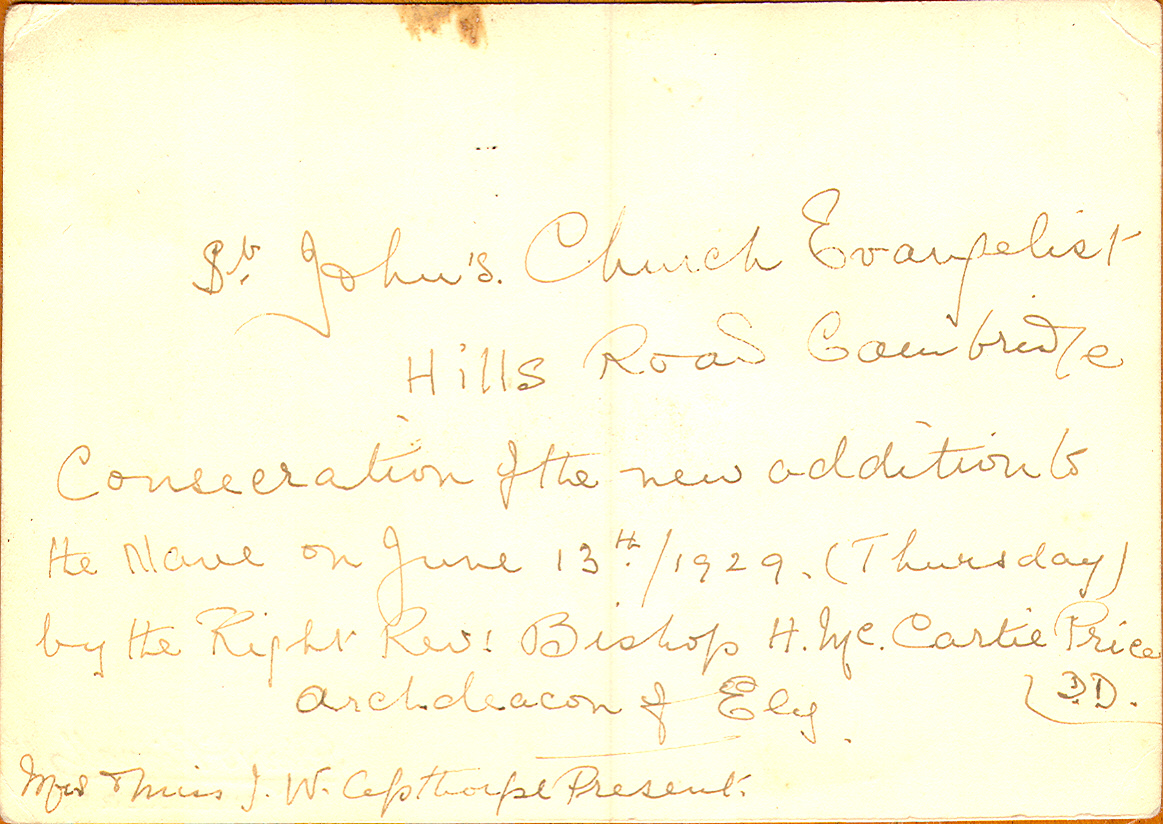 St. John's. Church Evangelist
Hills Road Cambridge
Consecration of the new addition to
the Nave on June 13th/1929. (Thursday)
by the Right Rev: Bishop H. Mc. Cartie Price
D.D.
Archdeacon of Ely.
Mrs & Miss J. W. Present.